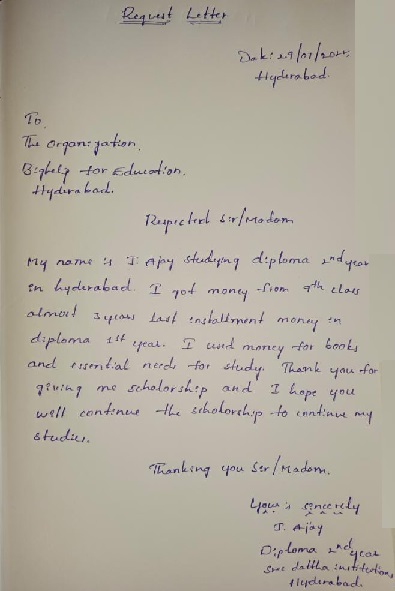 Request Letter
Date: 29/07/2025,
Hyderabad.
To,
The Organization,
Bighelp for Education,
Hyderabad.
Respected Sir/Madam
My name is J. Ajay studying diploma 2nd year
in hyderabad. I got money from 9th class
almost 3 years last installment money in
diploma 1st year. I used money for books
and essential needs for study. Thank you for
giving me scholarship and I hope you
will contenue the scholorship to continue my
studies.
Thanking you Sir/Madam.
Your's sincerely
J. Ajay
Diploma 2nd year
Sree dattha institutions,
Hyderabad.